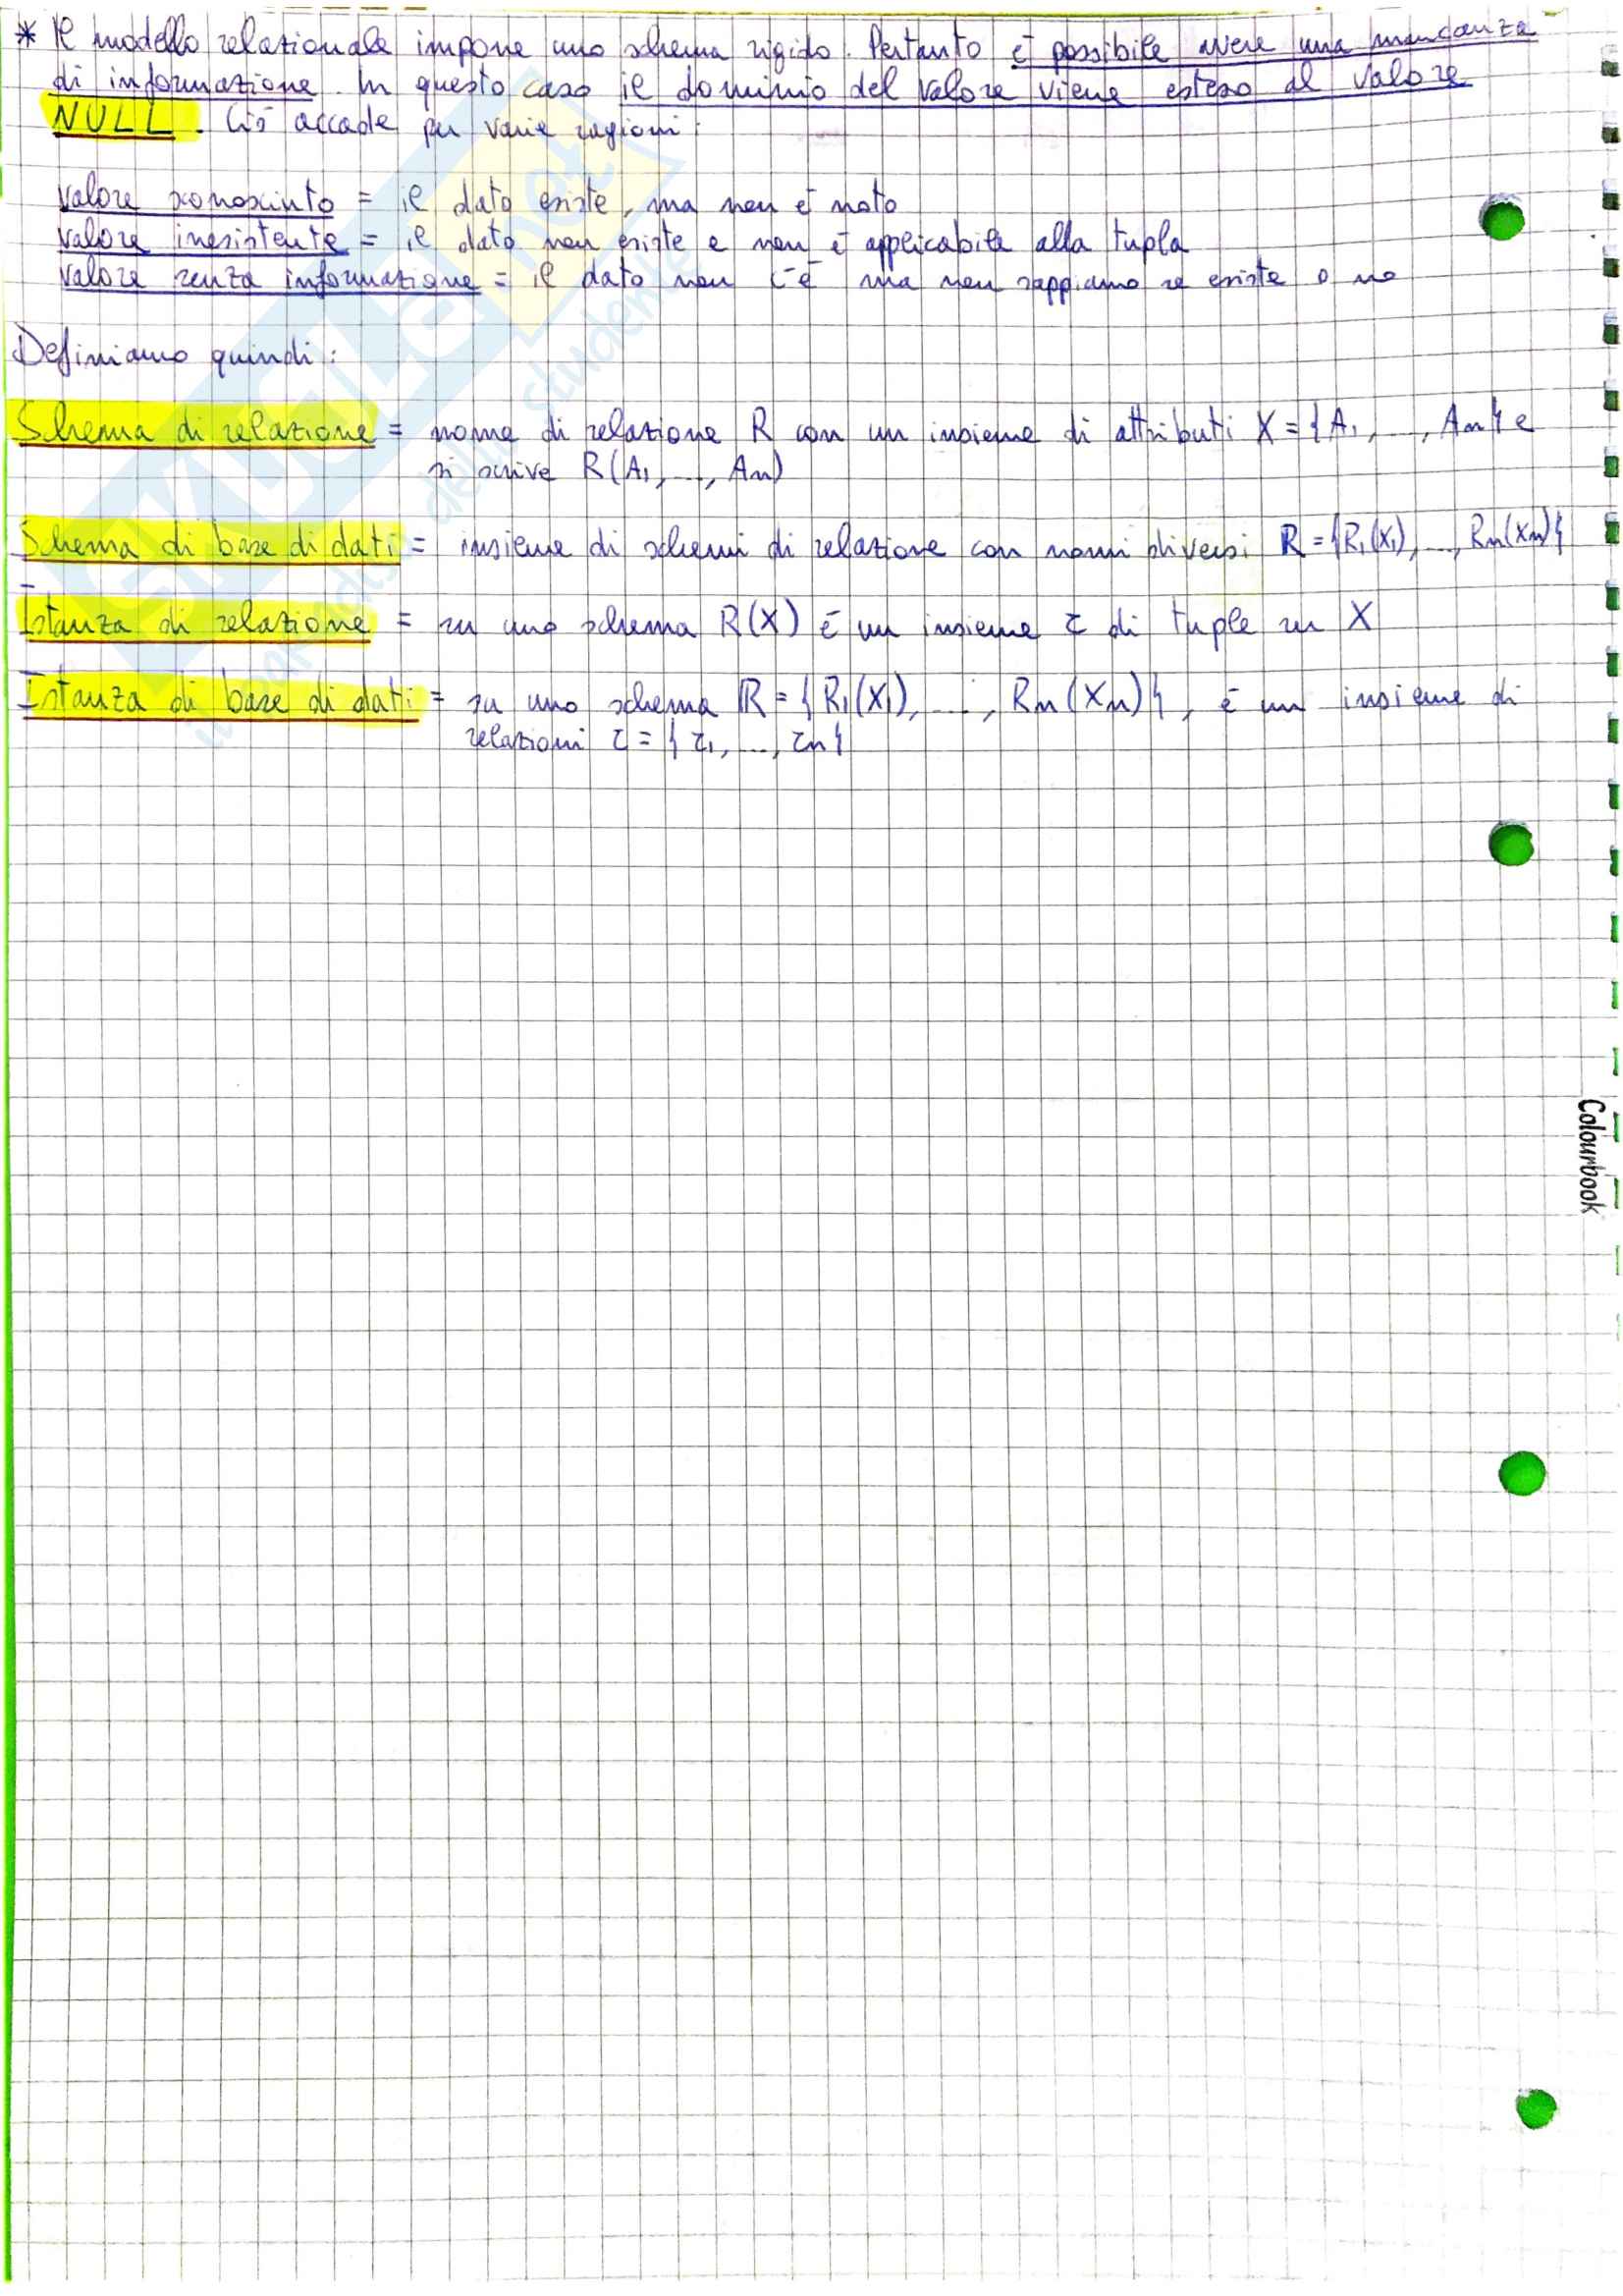 * Il modello relazionale impone uno schema rigido. Pertanto è possibile avere una mancanza
di informazione. In questo caso il dominio del valore viene esteso al valore
NULL. Ciò accade per varie ragioni:
valore sconosciuto = il dato esiste, ma non è noto
valore inesistente = il dato non esiste e non è applicabile alla tupla
valore senza informazione = il dato non c'è ma non sappiamo se esiste o no
Definiamo quindi:
Schema di relazione = nome di relazione R con un insieme di attributi X = {A₁, ..., An} e
si scrive R(A₁, ..., An)
Schema di base di dati = insieme di schemi di relazione con nomi diversi R = {R₁(X₁), ..., Rn(Xn)}
Istanza di relazione = su uno schema R(X) è un insieme r di tuple su X
Istanza di base di dati = su uno schema R = {R₁(X₁), ..., Rn(Xn)}, è un insieme di
relazioni r = {r₁, ..., rn}
Colourbook